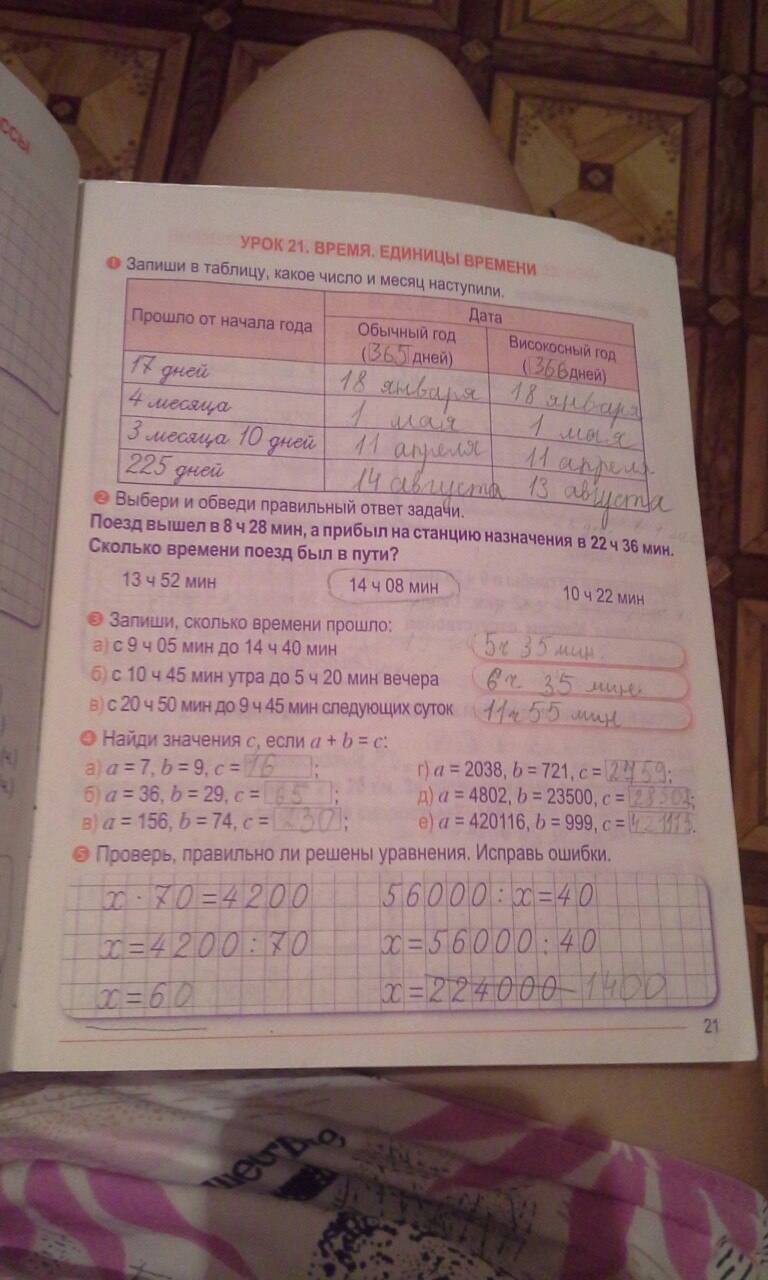 ССЫ
УРОК 21. ВРЕМЯ. ЕДИНИЦЫ ВРЕМЕНИ
1 Запиши в таблицу, какое число и месяц наступили.
Прошло от начала года
Дата
Обычный год
(365 дней)
Високосный год
(366 дней)
17 дней 18 января 18 января
4 месяца 1 мая 1 мая
3 месяца 10 дней 11 апреля 11 апреля
225 дней 14 августа 13 августа
2 Выбери и обведи правильный ответ задачи.
Поезд вышел в 8 ч 28 мин, а прибыл на станцию назначения в 22 ч 36 мин.
Сколько времени поезд был в пути?
13 ч 52 мин 14 ч 08 мин 10 ч 22 мин
3 Запиши, сколько времени прошло:
а) с 9 ч 05 мин до 14 ч 40 мин 5 ч 35 мин.
б) с 10 ч 45 мин утра до 5 ч 20 мин вечера 6 ч 35 мин.
в) с 20 ч 50 мин до 9 ч 45 мин следующих суток 11 ч 55 мин
4 Найди значения c, если a + b = c:
а) a = 7, b = 9, c = 16; г) a = 2038, b = 721, c = 2759;
б) a = 36, b = 29, c = 65; д) a = 4802, b = 23500, c = 28302;
в) a = 156, b = 74, c = 230; е) a = 420116, b = 999, c = 421115.
5 Проверь, правильно ли решены уравнения. Исправь ошибки.
x · 70 = 4200 56000 : x = 40
x = 4200 : 70 x = 56000 : 40
x = 60 x = 224000 1400
21